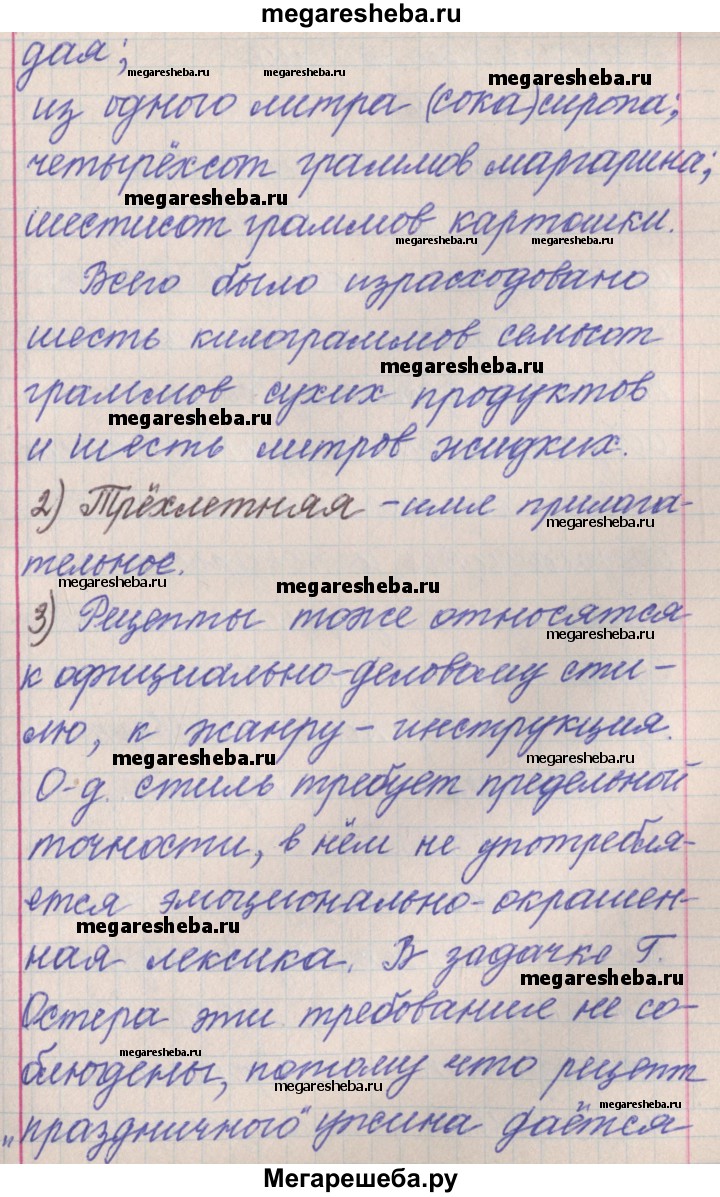 megaresheba.ru
дая;
megaresheba.ru megaresheba.ru megaresheba.ru
из одного литра (сока) сиропа;
четырёхсот граммов маргарина;
megaresheba.ru
шестисот граммов картошки.
megaresheba.ru megaresheba.ru
Всего было израсходовано
шесть килограммов семьсот
megaresheba.ru
граммов сухих продуктов
megaresheba.ru
и шесть литров жидких.
2) Трёхлетняя - имя прилага-
megaresheba.ru
тельное.
megaresheba.ru megaresheba.ru
3) Рецепты тоже относятся
megaresheba.ru
к официально-деловому сти-
лю, к жанру - инструкция.
megaresheba.ru megaresheba.ru
О-д. стиль требует предельной
точности, в нём не употребля-
ется эмоционально-окрашен-
megaresheba.ru
ная лексика. В задачке Г.
megaresheba.ru
Остера эти требование не со-
megaresheba.ru
блюдены, потому что рецепт
megaresheba.ru
megaresheba.ru
„праздничного" ужина даётся
Мегарешеба.ру